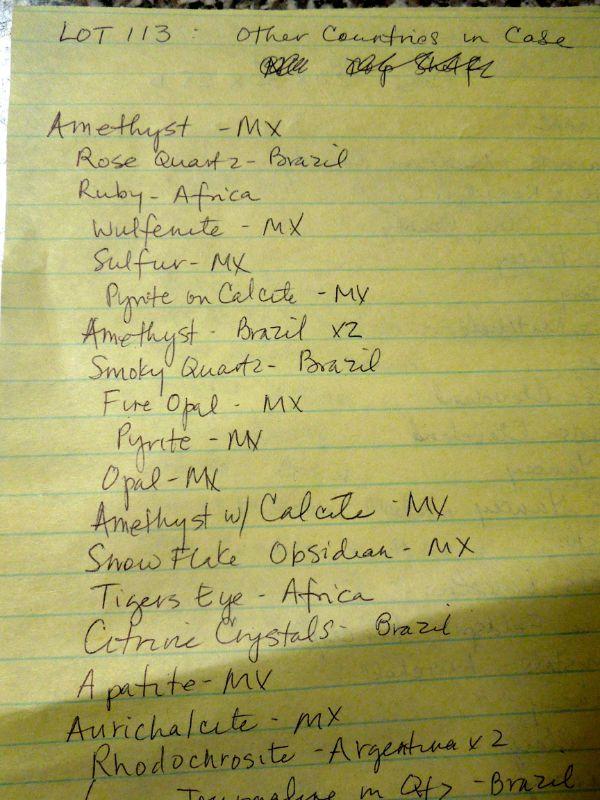 LOT 113 : Other Countries in Case
Amethyst - MX
Rose Quartz - Brazil
Ruby - Africa
Wulfenite - MX
Sulfur - MX
Pyrite on Calcite - MX
Amethyst - Brazil x2
Smoky Quartz - Brazil
Fire Opal - MX
Pyrite - MX
Opal - MX
Amethyst w/ Calcite - MX
Snow Flake Obsidian - MX
Tigers Eye - Africa
Citrine Crystals - Brazil
Apatite - MX
Aurichalcite - MX
Rhodochrosite - Argentina x 2
Tourmaline in Qtz - Brazil